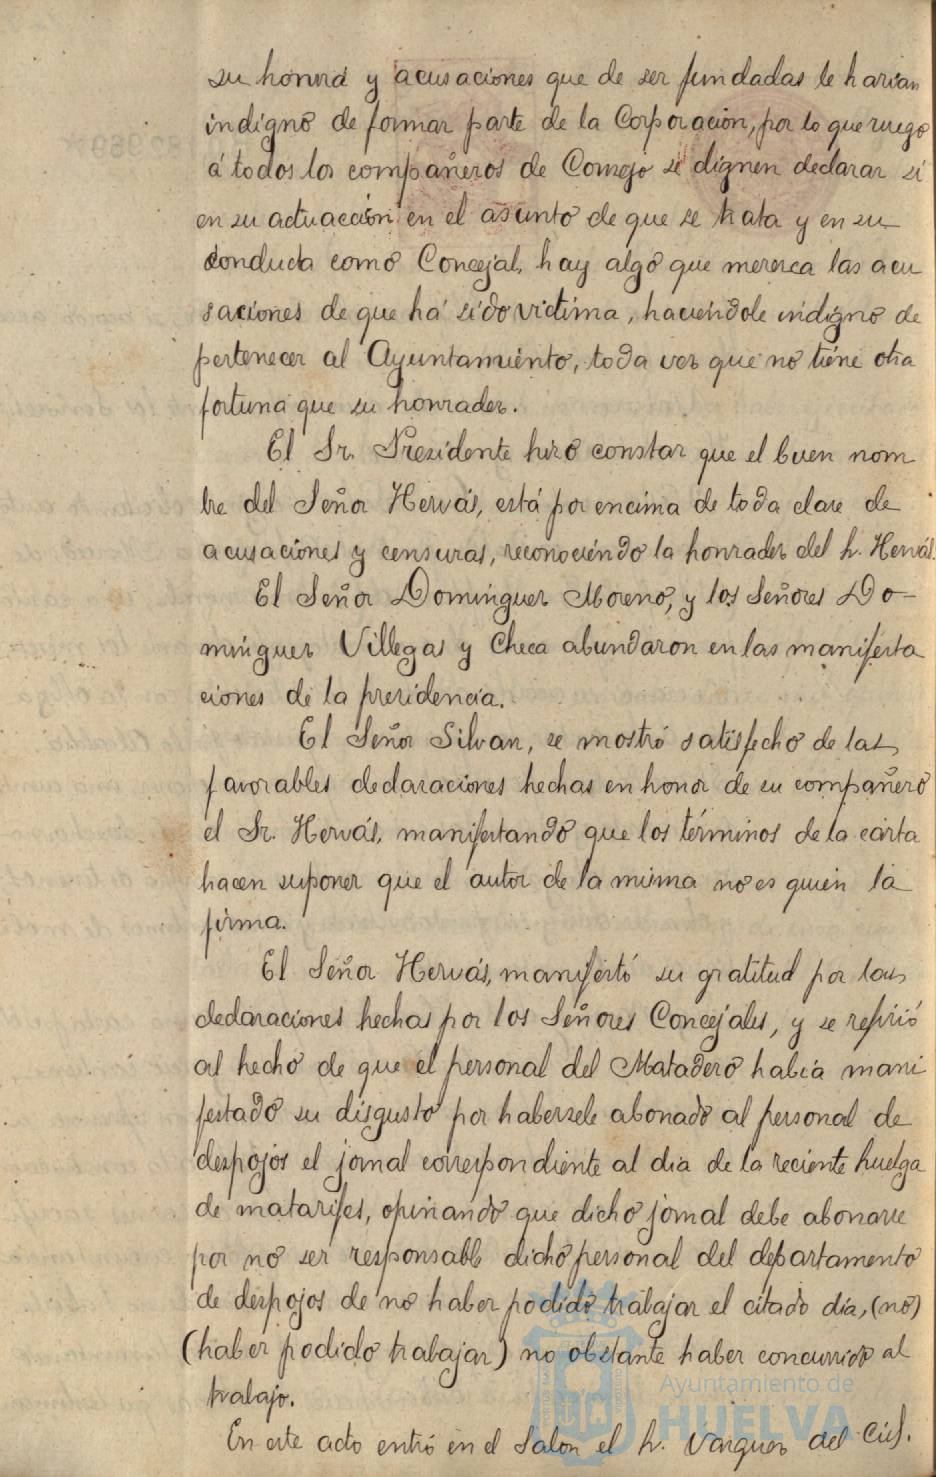 su honra y acusaciones que de ser fundadas le harían
indigno de formar parte de la Corporación, por lo que ruego
á todos los compañeros de Consejo se dignen declarar si
en su actuacción en el asunto de que se trata y en su
conducta como Concejal, hay algo que merezca las acu
saciones de que ha sido victima, haciéndole indigno de
pertenecer al Ayuntamiento, toda vez que no tiene otra
fortuna que su honradez.
El Sr. Presidente hizo constar que el buen nom
bre del Señor Hervás, está por encima de toda clase de
acusaciones y censuras, reconociendo la honradez del Sr. Hervás.
El Señor Dominguez Moreno, y los Señores Do-
minguez Villegas y Checa abundaron en las manifesta
ciones de la presidencia.
El Señor Silvan, se mostró satisfecho de las
favorables declaraciones hechas en honor de su compañero
el Sr. Hervás, manifestando que los términos de la carta
hacen suponer que el autor de la misma no es quien la
firma.
El Señor Hervás, manifestó su gratitud por las
declaraciones hechas por los Señores Concejales, y se refirió
al hecho de que el personal del Matadero había mani
festado su disgusto por habersele abonado al personal de
despojos el jornal correspondiente al dia de la reciente huelga
de matarifes, opinando que dicho jornal debe abonarse
por no ser responsable dicho personal del departamento
de despojos de no haber podido trabajar el citado día, (no)
(haber podido trabajar) no obstante haber concurrido al
trabajo.
En este acto entró en el Salon el Sr. Vazquez del Cid.
Ayuntamiento de
HUELVA